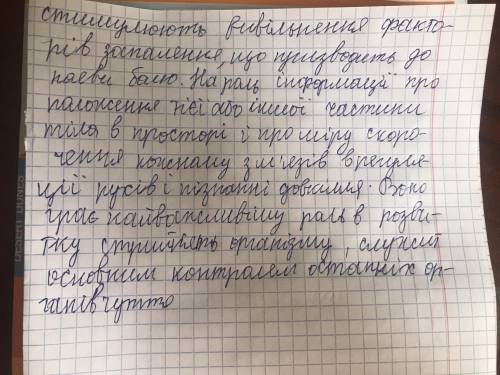 стимулюють вивільнення факто-
рів запалення, що призводить до
появи болю. На роль інформації про
положення тієї або іншої частини
тіла в просторі і про міру скоро-
чення кожному з м'язів в регуля-
ції рухів і пізнанні довкілля. Воно
грає найважливішу роль в розви-
тку організму, служит
основним контролем останніх ор-
ганів чуття
DESERT DUNES